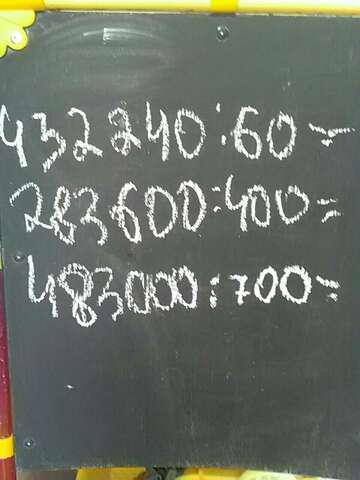 432240:60=
283600:400=
483000:700=